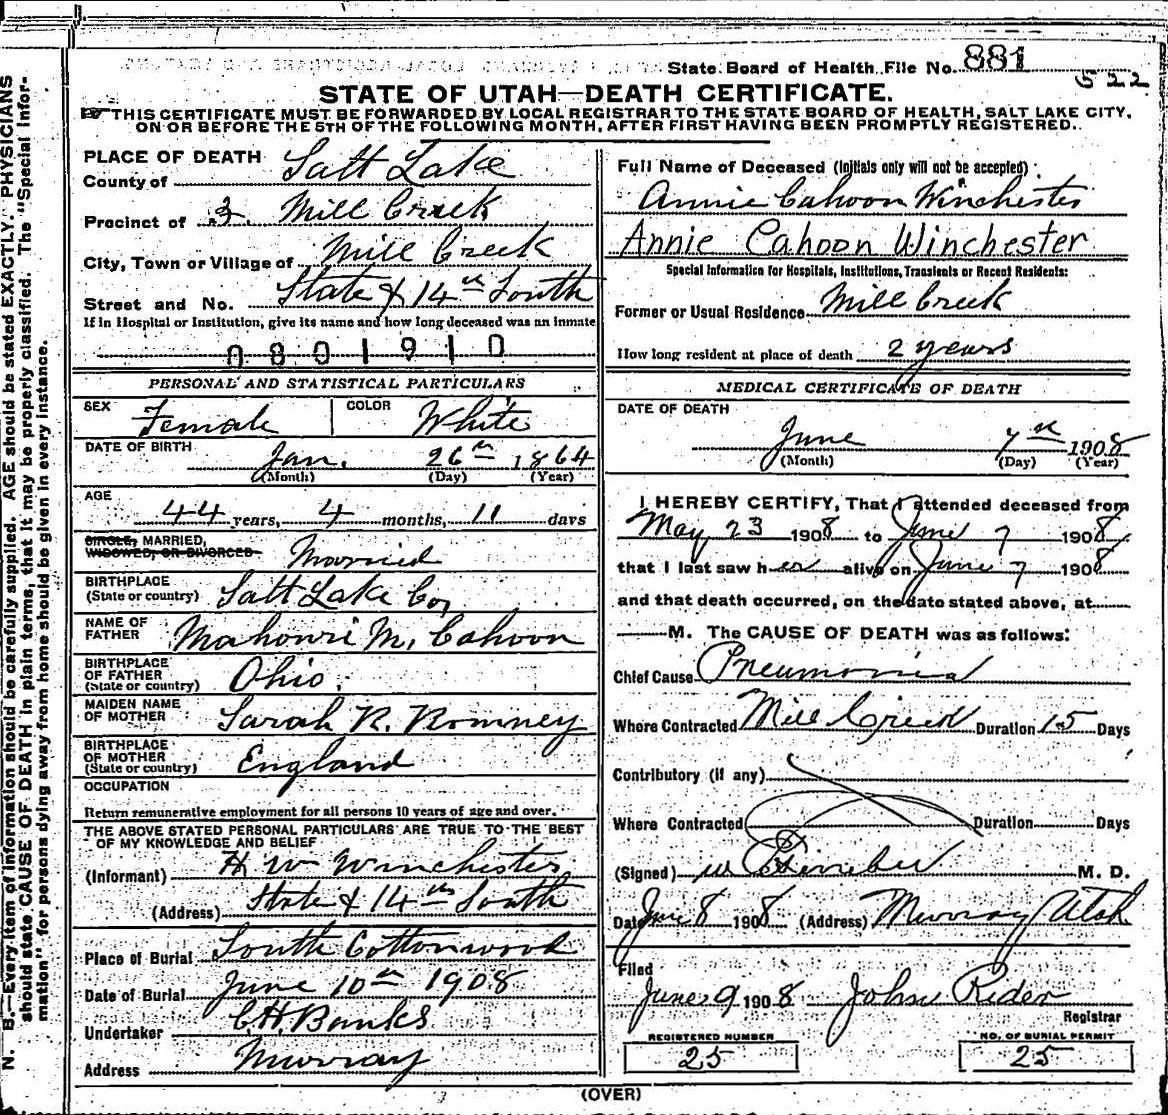 State Board of Health File No. 881
522
STATE OF UTAH—DEATH CERTIFICATE.
THIS CERTIFICATE MUST BE FORWARDED BY LOCAL REGISTRAR TO THE STATE BOARD OF HEALTH, SALT LAKE CITY,
ON OR BEFORE THE 5TH OF THE FOLLOWING MONTH, AFTER FIRST HAVING BEEN PROMPTLY REGISTERED.
N. B.—Every item of information should be carefully supplied. AGE should be stated EXACTLY. PHYSICIANS
should state CAUSE OF DEATH in plain terms, that it may be properly classified. The "Special Infor-
mation" for persons dying away from home should be given in every instance.
PLACE OF DEATH
County of Salt Lake
Precinct of 3 Mill Creek
City, Town or Village of Mill Creek
Street and No. State & 14th South
If in Hospital or Institution, give its name and how long deceased was an inmate
0801910
PERSONAL AND STATISTICAL PARTICULARS
SEX Female COLOR White
DATE OF BIRTH
Jan. 26th 1864
(Month) (Day) (Year)
AGE
44 years, 4 months, 11 days
SINGLE, MARRIED,
WIDOWED, OR DIVORCED Married
BIRTHPLACE
(State or country) Salt Lake Co,
NAME OF
FATHER Mahonri M. Cahoon
BIRTHPLACE
OF FATHER
(State or country) Ohio.
MAIDEN NAME
OF MOTHER Sarah R. Romney
BIRTHPLACE
OF MOTHER
(State or country) England
OCCUPATION
Return remunerative employment for all persons 10 years of age and over.
THE ABOVE STATED PERSONAL PARTICULARS ARE TRUE TO THE BEST
OF MY KNOWLEDGE AND BELIEF
(Informant) H W Winchester
(Address) State & 14th South
Place of Burial South Cottonwood
Date of Burial June 10th 1908
Undertaker C.H. Banks
Address Murray
Full Name of Deceased (Initials only will not be accepted)
Annie Cahoon Winchester
Annie Cahoon Winchester
Special Information for Hospitals, Institutions, Transients or Recent Residents:
Former or Usual Residence Mill Creek
How long resident at place of death 2 years
MEDICAL CERTIFICATE OF DEATH
DATE OF DEATH
June 7th 1908
(Month) (Day) (Year)
I HEREBY CERTIFY, That I attended deceased from
May 23 1908 to June 7 1908
that I last saw her alive on June 7 1908
and that death occurred, on the date stated above, at
M. The CAUSE OF DEATH was as follows:
Chief Cause Pneumonia
Where Contracted Mill Creek Duration 15 Days
Contributory (if any)
Where Contracted Duration Days
(Signed) M. D.
Date June 8 1908 (Address) Murray Utah
Filed
June 9 1908 John Rider
Registrar
REGISTERED NUMBER
25
NO. OF BURIAL PERMIT
25
(OVER)